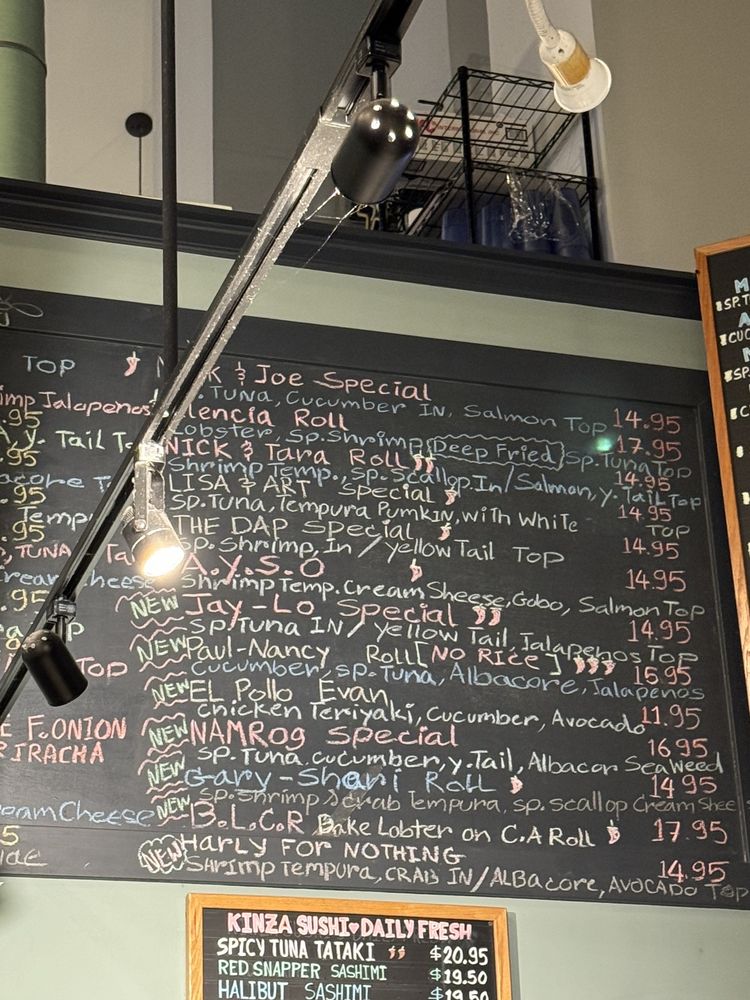 TOP
K & Joe Special
TUNA, Cucumber IN, Salmon Top 14.95
Jalapenos
lencia Roll 17.95
.95
Lobster, Sp. Shrimp Deep Fried Sp. Tuna Top
y. Tail
NICK & Tara Roll 14.95
.95
Shrimp Temp., sp. Scallop. In/Salmon, y. Tail Top
LISA & ART Special 14.95
.95
SP. Tuna, Tempura Pumkin, with White Top
Temp
THE DAP Special 14.95
.95
sp. Shrimp, In / yellow Tail Top
TUNA
A.Y.S.O 14.95
Cheese
Shrimp Temp. Cream Sheese, Gobo, Salmon Top
.95
NEW Jay-Lo Special 14.95
SP. Tuna IN / yellow Tail, Jalapenos Top
NEW Paul-Nancy Roll [NO RICE] 15.95
TOP
cucumber, sp. Tuna, Albacore, Jalapenos
NEW EL Pollo Evan 11.95
chicken Teriyaki, Cucumber, Avocado
F. ONION
NEW NAMROg Special 16.95
SRIRACHA
SP. Tuna, cucumber, y. Tail, Albacor Sea Weed
NEW Gary-Shari Roll 14.95
SP. Shrimp & crab Tempura, sp. scallop Cream Shee
Cream Cheese
NEW B.L.C.R Bake Lobster on C.A Roll 17.95
5
NEW HARLY FOR NOTHING 14.95
SHRIMP Tempura, CRAB IN/ALBacore, AVOCADO Top
KINZA SUSHI♥DAILY FRESH
SPICY TUNA TATAKI $20.95
RED SNAPPER SASHIMI $19.50
HALIBUT SASHIMI $19.50